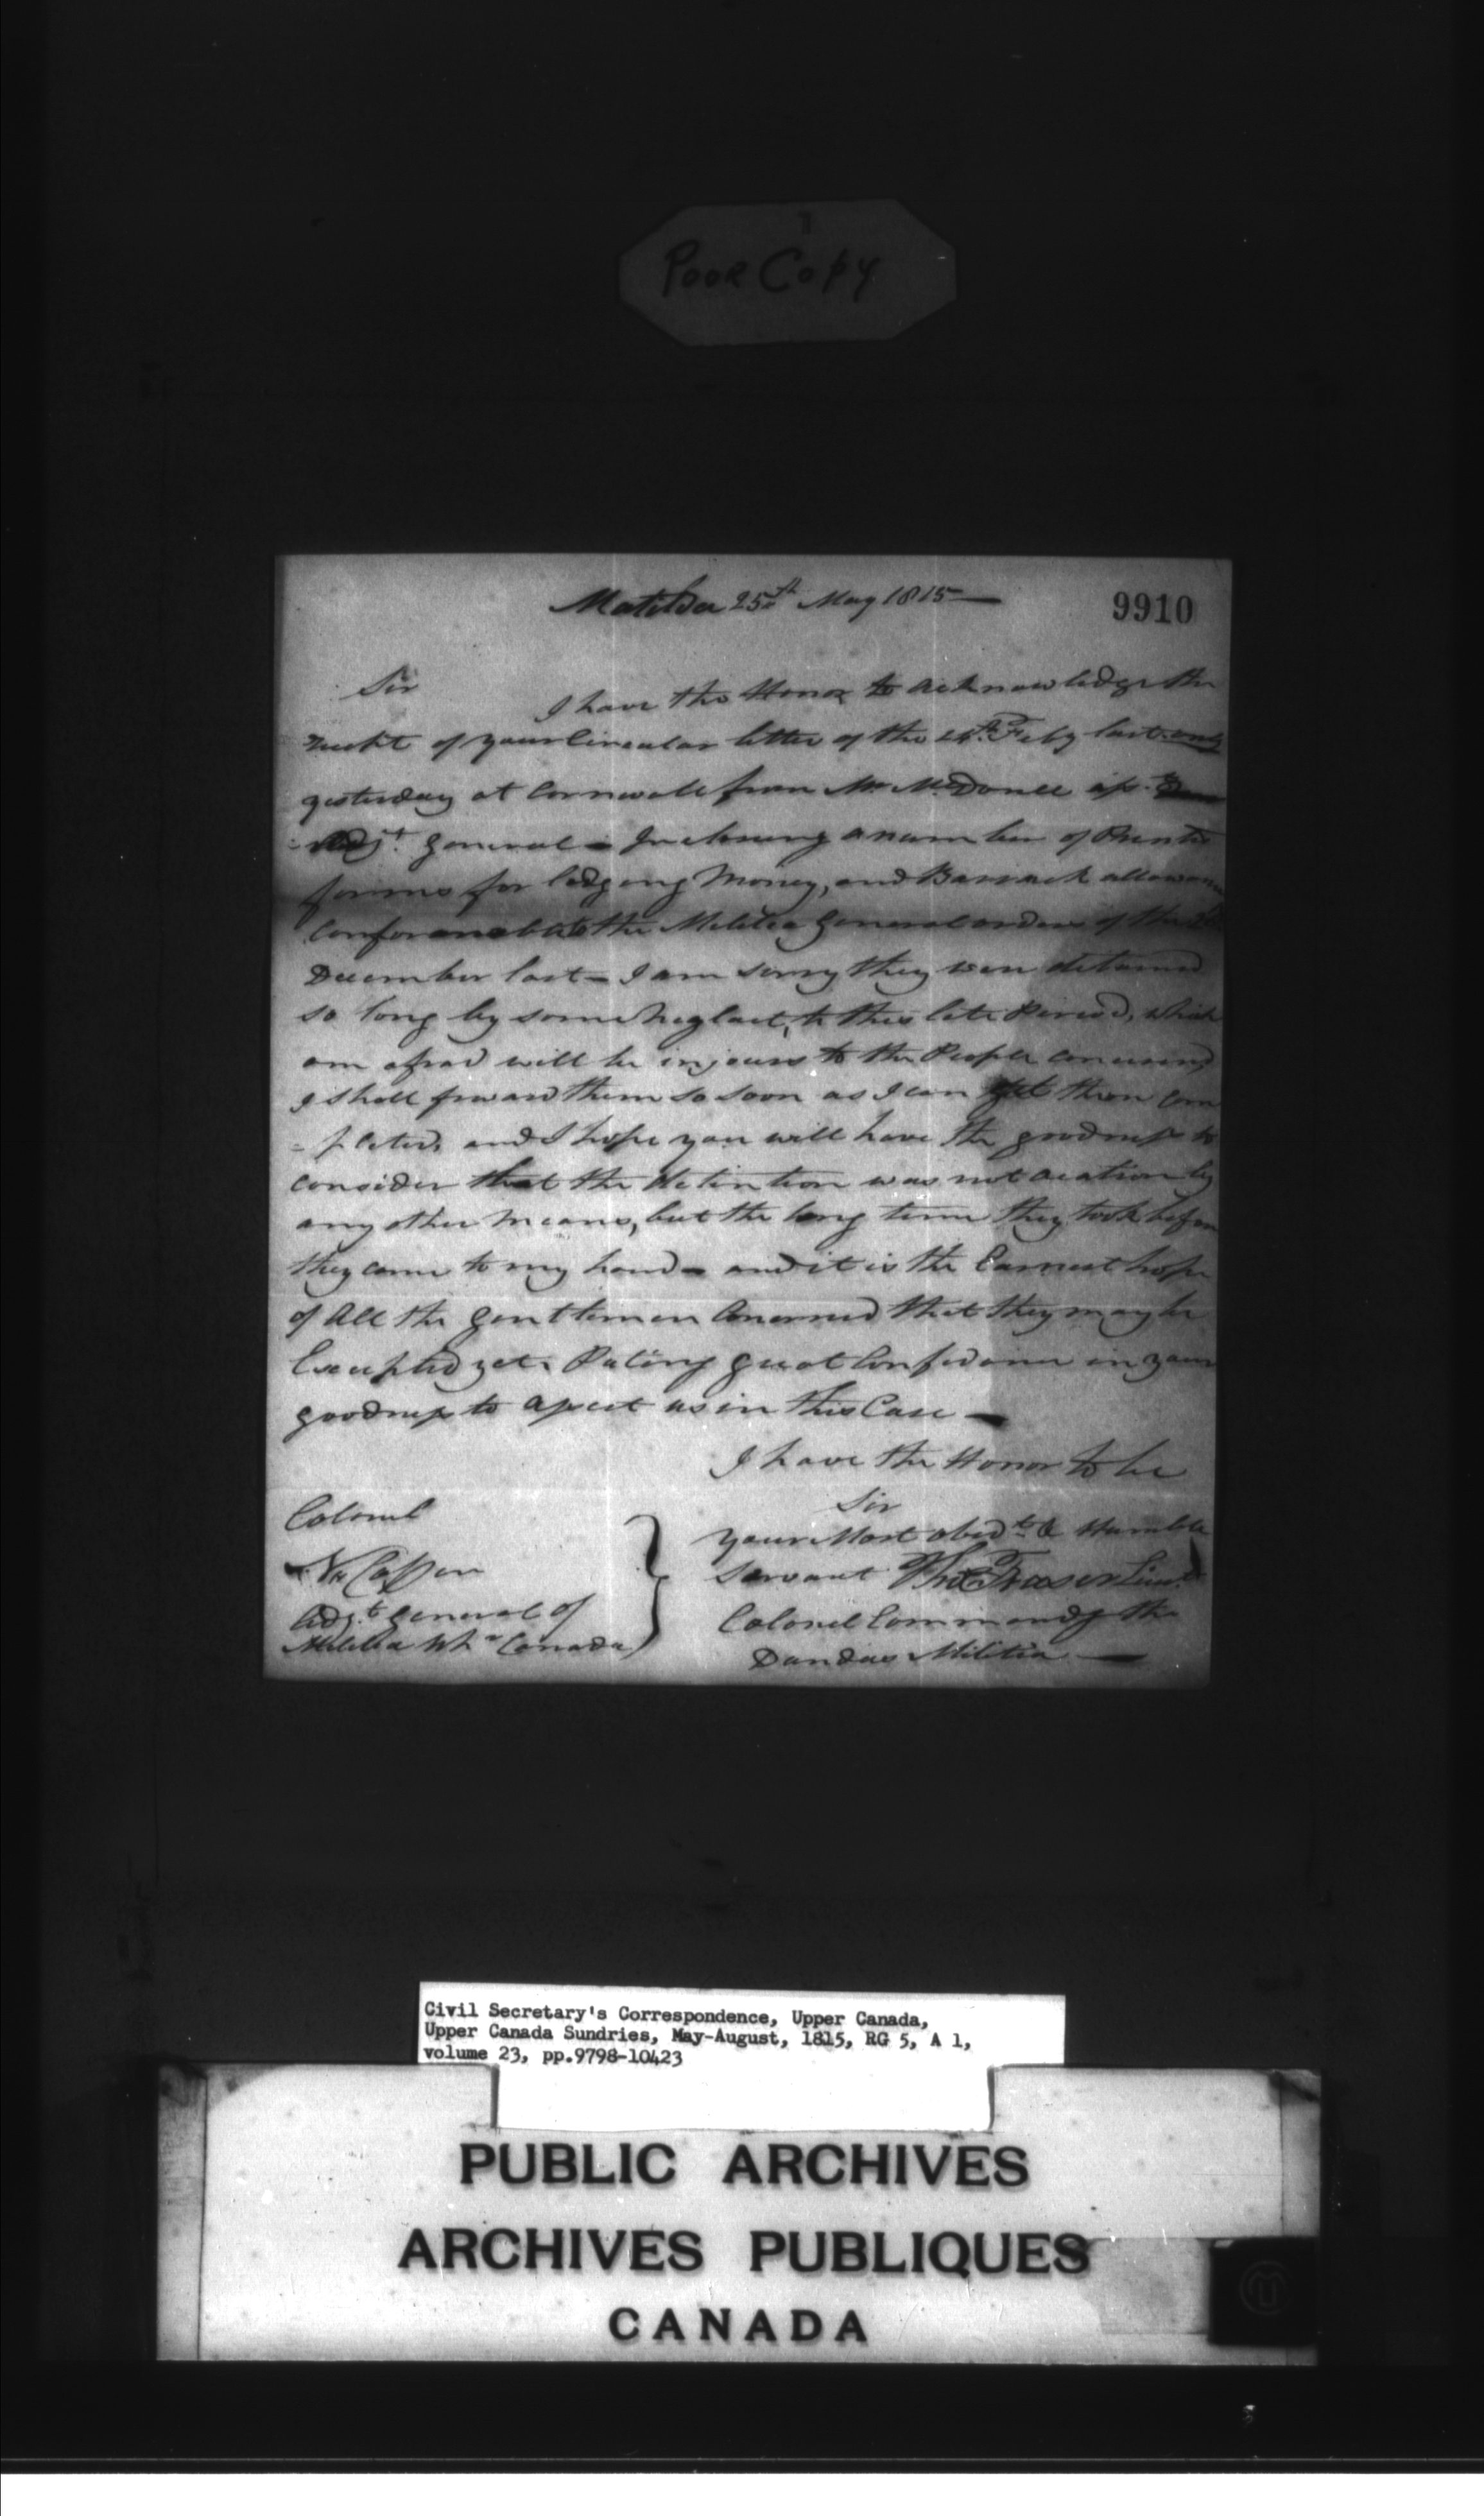 Poor Copy
Matilda 25th May 1815
9910
Sir
I have the Honor to acknowledge the
receht of your Circular letter of the 24th Feby last only
yesterday at Cornwall from Mr McDonell
Adjt General - Inclosing a number of Printed
forms for lodgeing Money, and Barrack allowance
Conformable to the Militia General orders of the
December last - I am sorry they were detained
so long by some Neglect, to this late Period, which
am afraid will be injours to the People concerned
I shall forward them so soon as I can get them Com
=pleted, and I hope you will have the goodness to
consider that the detention was not acation by
any other means, but the long time they took before
they came to my hand - and it is the Earnest hope
of all the Gentlemen Concerned that they may be
Excepted yet, Puting great Confidence in your
goodness to assist us in this Case -
I have the Honor to be
Sir
your Most obedt & Humble
Servant Thos Fraser Lieut
Colonel Commandg the
Dundas Militia
Colonel
N. Coffin
Adjt General of
Militia Upr Canada
Civil Secretary's Correspondence, Upper Canada,
Upper Canada Sundries, May-August, 1815, RG 5, A 1,
volume 23, pp.9798-10423
PUBLIC ARCHIVES
ARCHIVES PUBLIQUES
CANADA